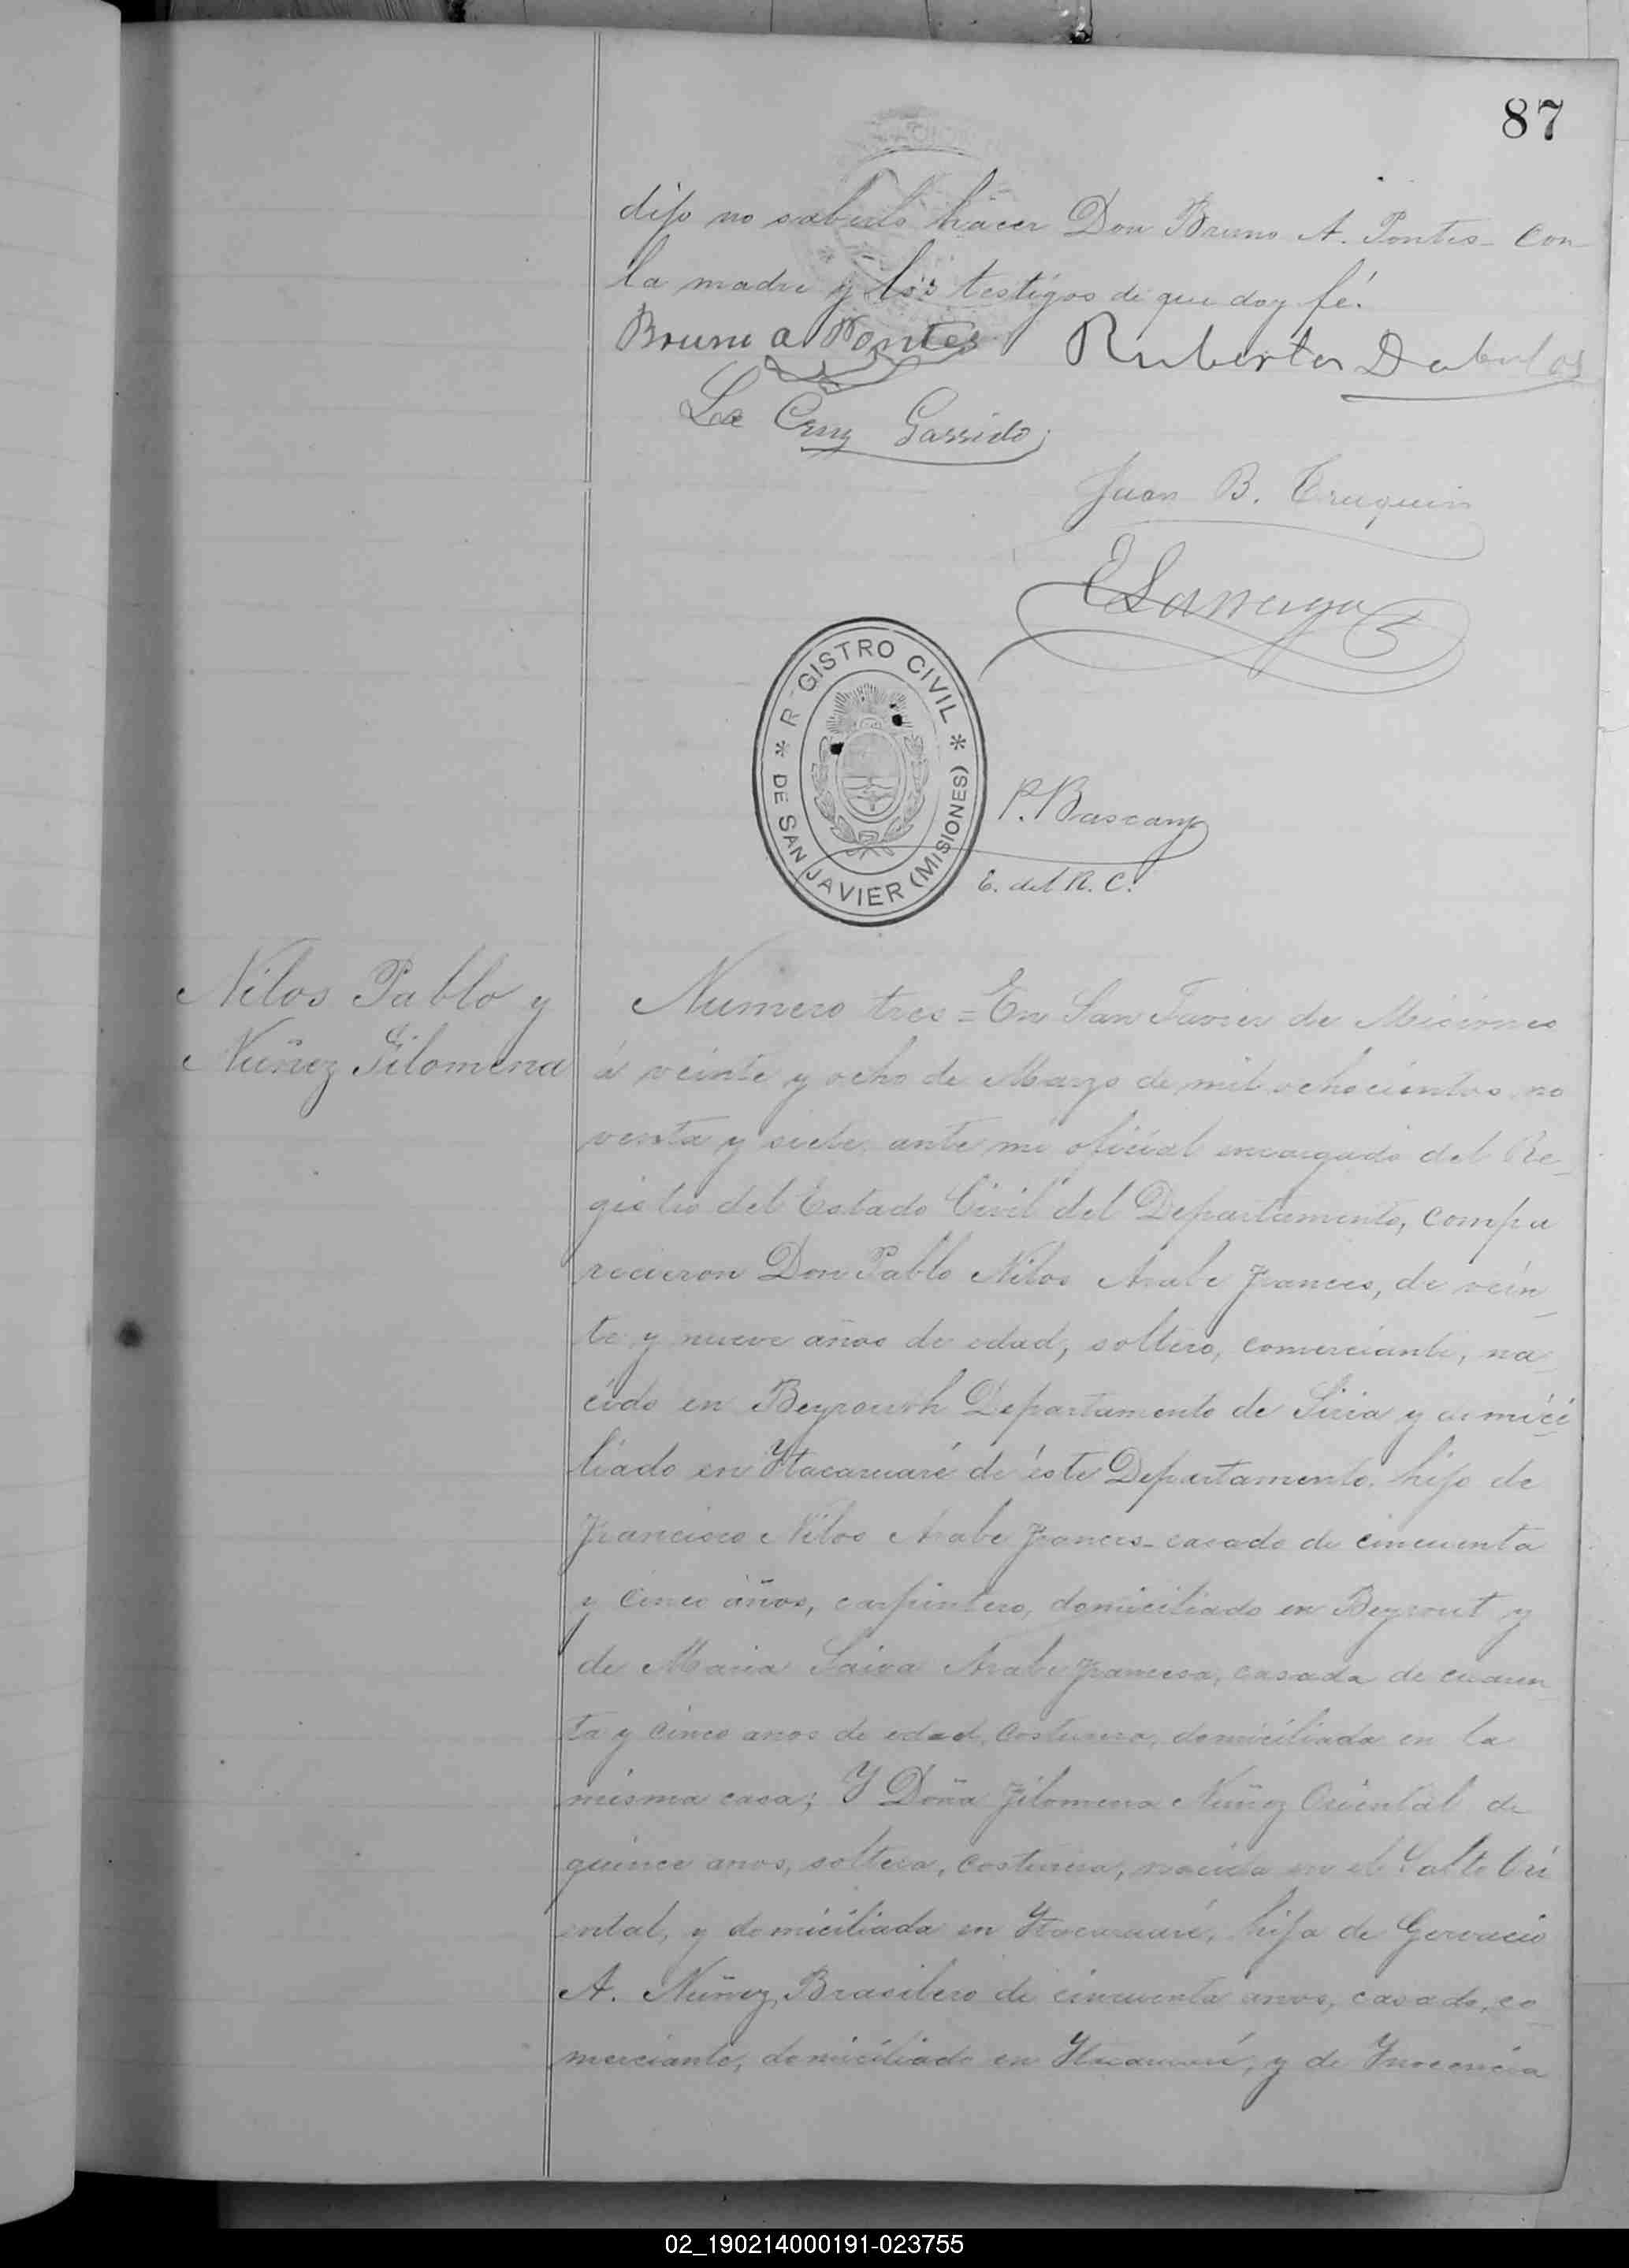 87
dijo no saberlo hacer Don Bruno A. Pontes con
la madre y los testigos de que doy fé.
Bruno A Pontes
Ruberto
La Cruz Garrido
Juan B.
R GISTRO CIVIL
* DE SAN JAVIER (MISIONES) *
E. del R. C.
Nilos Pablo y
Nuñez Filomena
Numero tres = En San Javier de Misiones
á veinte y ocho de Marzo de mil ochocientos no
venta y siete, ante mi oficial encargado del Re-
gistro del Estado Civil del Departamento, compa
recieron Don Pablo Nilos Arabe frances, de vein-
te y nueve años de edad, soltero, comerciante, na-
cido en Beyrouth Departamento de Siria y domici
liado en Ytacaruaré de éste Departamento. hijo de
Francisco Nilos Arabe frances casado de cincuenta
y cinco años, carpintero, domiciliado en Beyrout y
de Maria Saiva Arabe francesa, casada de cuaren-
ta y cinco anos de edad, costurera, domiciliada en la
misma casa; Y Doña Filomena Nuñez Oriental de
quince anos, soltera, costurera, nacida en el Salto Ori
ental, y domiciliada en Ytacaruaré, hija de Gervacio
A. Nuñez, Brasilero de cincuenta anos, casado, co-
merciante, domiciliado en Ytacaruaré, y de Ynocencia
02_190214000191-023755